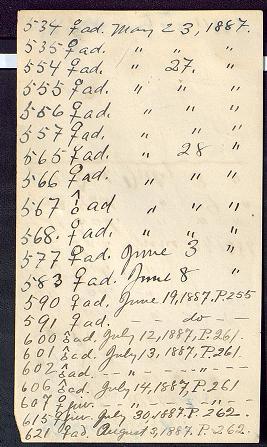 534 ♀ ad. May 23, 1887.
535 ♀ ad. " " "
554 ♀ ad. " 27. "
555 ♀ ad. " " "
556 ♀ ad. " " "
557 ♀ ad. " " "
565 ♀ ad. " 28 "
566 ♀ ad. " " "
567 ♂ ad " " "
568. ♀ ad. " " "
577 ♀ ad. June 3 "
583 ♀ ad. June 8 "
590 ♀ ad. June 19, 1887. P. 255
591 ♀ ad. — do — —
600 ♂ ad. July 12, 1887, P. 261.
601 ♂ ad. July 13, 1887, P. 261
602 ♂ ad. — " — — " —
606 ♂ ad. July 14, 1887, P. 261
607 ♀ juv. — " — — " —
615 ♀ juv. July 30, 1887. P. 262.
621 ♀ ad. August 3, 1887. P. 262.